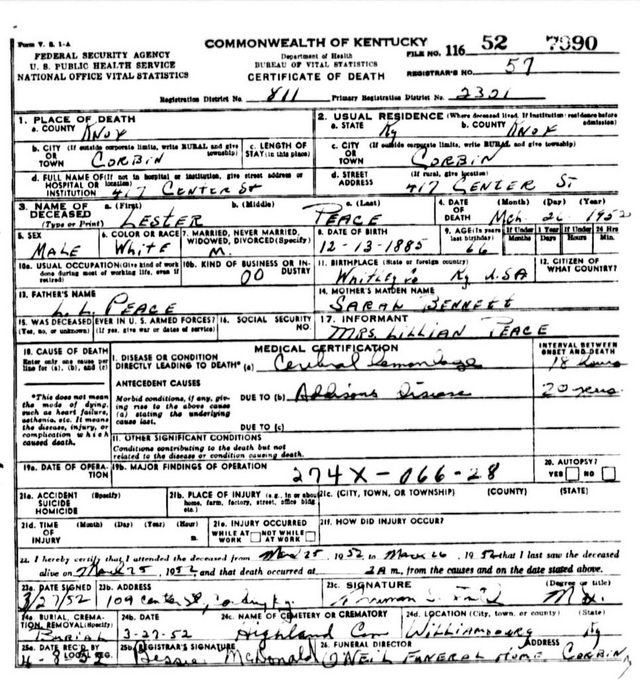 Form V. S. 1-A
COMMONWEALTH OF KENTUCKY
FEDERAL SECURITY AGENCY
U. S. PUBLIC HEALTH SERVICE
NATIONAL OFFICE VITAL STATISTICS
Department of Health
BUREAU OF VITAL STATISTICS
CERTIFICATE OF DEATH
FILE NO. 116 52 7990
REGISTRAR'S NO. 57
Registration District No. 811 Primary Registration District No. 2321
1. PLACE OF DEATH
a. COUNTY KNOX
2. USUAL RESIDENCE (Where deceased lived. If institution: residence before admission)
a. STATE Ky b. COUNTY KNOX
b. CITY (If outside corporate limits, write RURAL and give township) OR TOWN CORBIN
c. LENGTH OF STAY (in this place)
c. CITY (If outside corporate limits, write RURAL and give township) OR TOWN CORBIN
d. FULL NAME OF (If not in hospital or institution, give street address or location) HOSPITAL OR INSTITUTION 417 CENTER St
d. STREET ADDRESS (If rural, give location) 417 CENTER St
3. NAME OF DECEASED (Type or Print) a. (First) LESTER b. (Middle) c. (Last) PEACE
4. DATE OF DEATH (Month) (Day) (Year) Mch 26 1952
5. SEX MALE
6. COLOR OR RACE White
7. MARRIED, NEVER MARRIED, WIDOWED, DIVORCED (Specify) M.
8. DATE OF BIRTH 12-13-1885
9. AGE (In years last birthday) 66 If Under 1 Year Months Days If Under 24 Hrs Hours Min.
10a. USUAL OCCUPATION (Give kind of work done during most of working life, even if retired)
10b. KIND OF BUSINESS OR INDUSTRY 00
11. BIRTHPLACE (State or foreign country) WHITLEY Co Ky USA
12. CITIZEN OF WHAT COUNTRY?
13. FATHER'S NAME L. L. PEACE
14. MOTHER'S MAIDEN NAME SARAH BENNETT
15. WAS DECEASED EVER IN U. S. ARMED FORCES? (Yes, no, or unknown) (If yes, give war or dates of service)
16. SOCIAL SECURITY NO.
17. INFORMANT MRS LILLIAN PEACE
18. CAUSE OF DEATH
Enter only one cause per line for (a), (b), and (c)
MEDICAL CERTIFICATION
INTERVAL BETWEEN ONSET AND DEATH
I. DISEASE OR CONDITION DIRECTLY LEADING TO DEATH* (a) Cerebral Hemorrhage 18 hours
*This does not mean the mode of dying, such as heart failure, asthenia, etc. It means the disease, injury, or complication which caused death.
ANTECEDENT CAUSES
Morbid conditions, if any, giving rise to the above cause (a) stating the underlying cause last.
DUE TO (b) Addisons Disease 20 years
DUE TO (c)
II. OTHER SIGNIFICANT CONDITIONS
Conditions contributing to the death but not related to the disease or condition causing death.
19a. DATE OF OPERATION
19b. MAJOR FINDINGS OF OPERATION
274X-066-28
20. AUTOPSY? YES NO
21a. ACCIDENT SUICIDE HOMICIDE (Specify)
21b. PLACE OF INJURY (e.g., in or about home, farm, factory, street, office bldg., etc.)
21c. (CITY, TOWN, OR TOWNSHIP) (COUNTY) (STATE)
21d. TIME OF INJURY (Month) (Day) (Year) (Hour) m.
21e. INJURY OCCURRED WHILE AT WORK NOT WHILE AT WORK
21f. HOW DID INJURY OCCUR?
22. I hereby certify that I attended the deceased from Mar 25, 1952 to March 26, 1952 that I last saw the deceased
alive on March 25, 1952, and that death occurred at 2 A m., from the causes and on the date stated above.
23a. DATE SIGNED 3/27/52
23b. ADDRESS 109 Center St, Corbin, Ky.
23c. SIGNATURE (Degree or title) M.D.
24a. BURIAL, CREMATION, REMOVAL (Specify) BURIAL
24b. DATE 3-27-52
24c. NAME OF CEMETERY OR CREMATORY Highland Cem
24d. LOCATION (City, town, or county) (State) Williamsburg Ky
25a. DATE REC'D BY LOCAL REG. 4-8-52
25b. REGISTRAR'S SIGNATURE Bessie McDonald
26. FUNERAL DIRECTOR ADDRESS O'NEIL FUNERAL HOME CORBIN